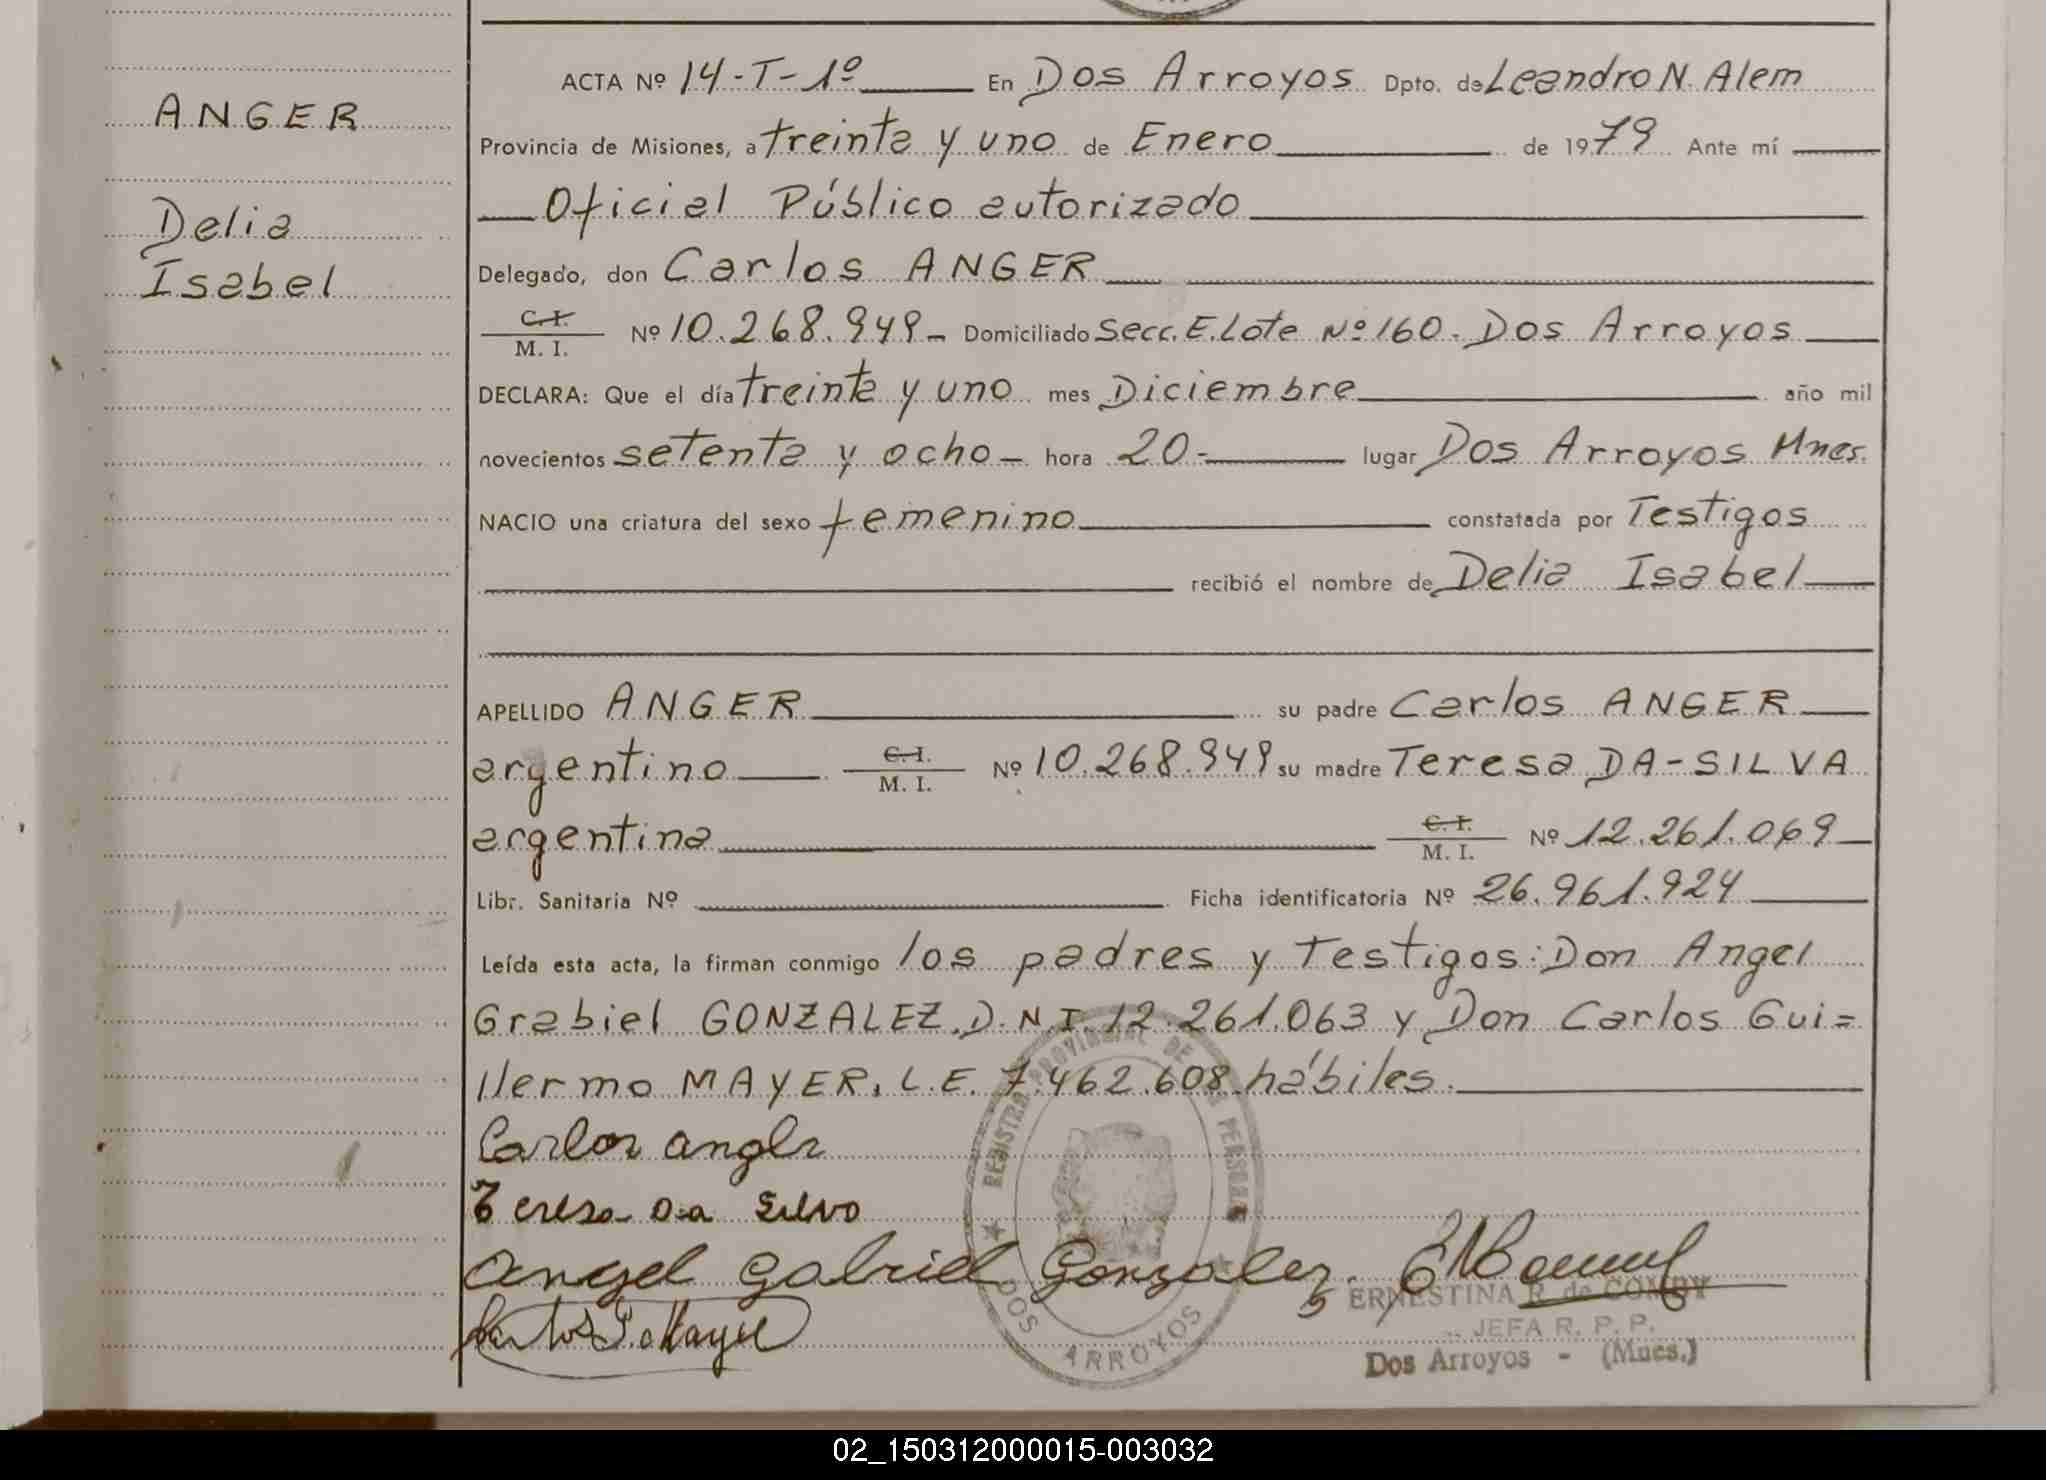 ANGER
Delia
Isabel
ACTA Nº 14-T-1º En Dos Arroyos Dpto. de Leandro N. Alem
Provincia de Misiones, a treinta y uno de Enero de 1979 Ante mí
Oficial Público autorizado
Delegado, don Carlos ANGER
C.I. M. I. Nº 10.268.949 - Domiciliado Secc. E. Lote Nº 160. Dos Arroyos
DECLARA: Que el día treinta y uno mes Diciembre año mil
novecientos setenta y ocho - hora 20.- lugar Dos Arroyos Mnes.
NACIO una criatura del sexo femenino constatada por Testigos
recibió el nombre de Delia Isabel
APELLIDO ANGER su padre Carlos ANGER
argentino C.I. M. I. Nº 10.268.949 su madre Teresa DA-SILVA
argentina C.I. M. I. Nº 12.261.069
Libr. Sanitaria Nº Ficha identificatoria Nº 26.961.924
Leída esta acta, la firman conmigo los padres y Testigos: Don Angel
Grabiel GONZALEZ, D.N.I. 12.261.063 y Don Carlos Gui=
llermo MAYER, L.E. 7.462.608 hábiles.
Carlos Anger
Teresa Da Silva
Angel Gabriel Gonzalez
Carlos G. Mayer
REGISTRO PROVINCIAL DE LAS PERSONAS
DOS ARROYOS
ERNESTINA R. de
JEFA R. P. P.
Dos Arroyos - (Mnes.)
02_150312000015-003032